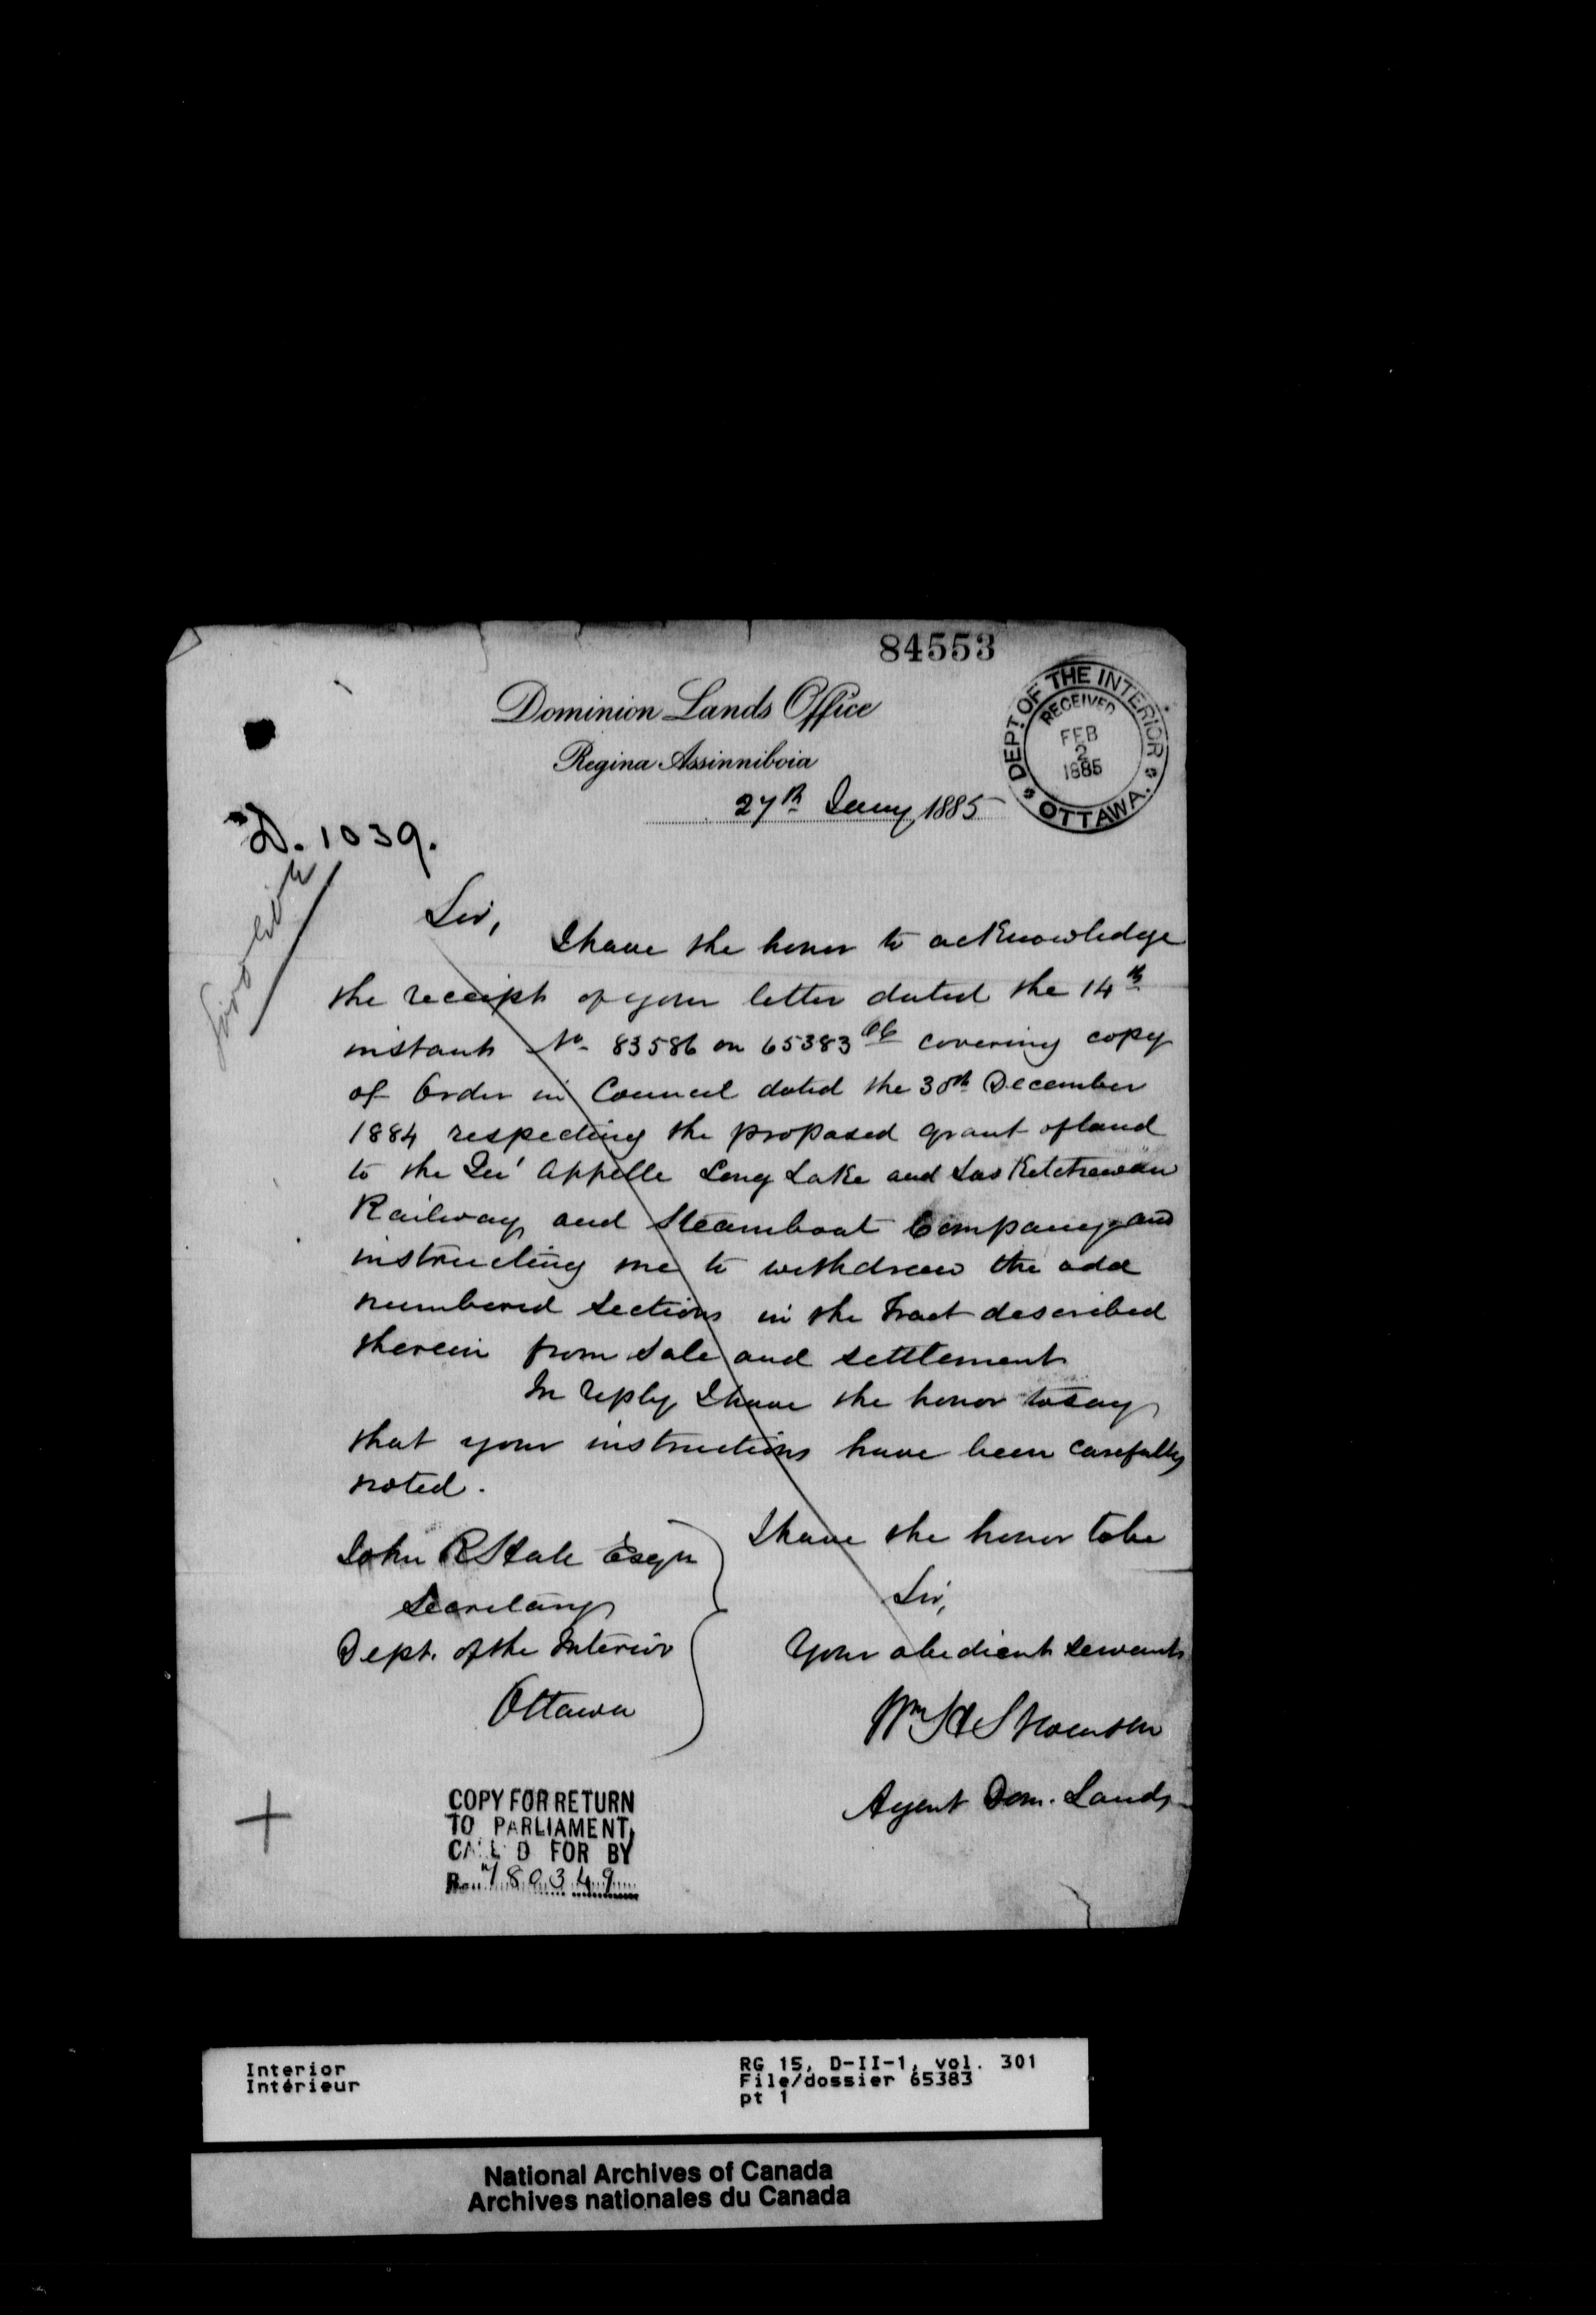 84553
Dominion Lands Office
Regina Assinniboia
27th Jany 1885
DEPT. OF THE INTERIOR
RECEIVED
FEB
2
1885
OTTAWA.
D. 1039.
Sir,
I have the honor to acknowledge
the receipt of your letter dated the 14th
instant No 83586 on 65383 covering copy
of Order in Council dated the 30th December
1884 respecting the proposed grant of land
to the Qu' Appelle Long Lake and Sasketchewan
Railway and Steamboat Company and
instructing me to withdraw the odd
numbered sections in the Tract described
therein from Sale and settlement
In reply I have the honor to say
that your instructions have been carefully
noted.
I have the honor to be
Sir,
Your obedient servant
Wm H Stevenson
Agent Dom. Lands
John R Hall Esqr
Secretary
Dept. of the Interior
Ottawa
COPY FOR RETURN
TO PARLIAMENT,
CALL D FOR BY
180349
Interior
Intérieur
RG 15, D-II-1, vol. 301
File/dossier 65383
pt 1
National Archives of Canada
Archives nationales du Canada